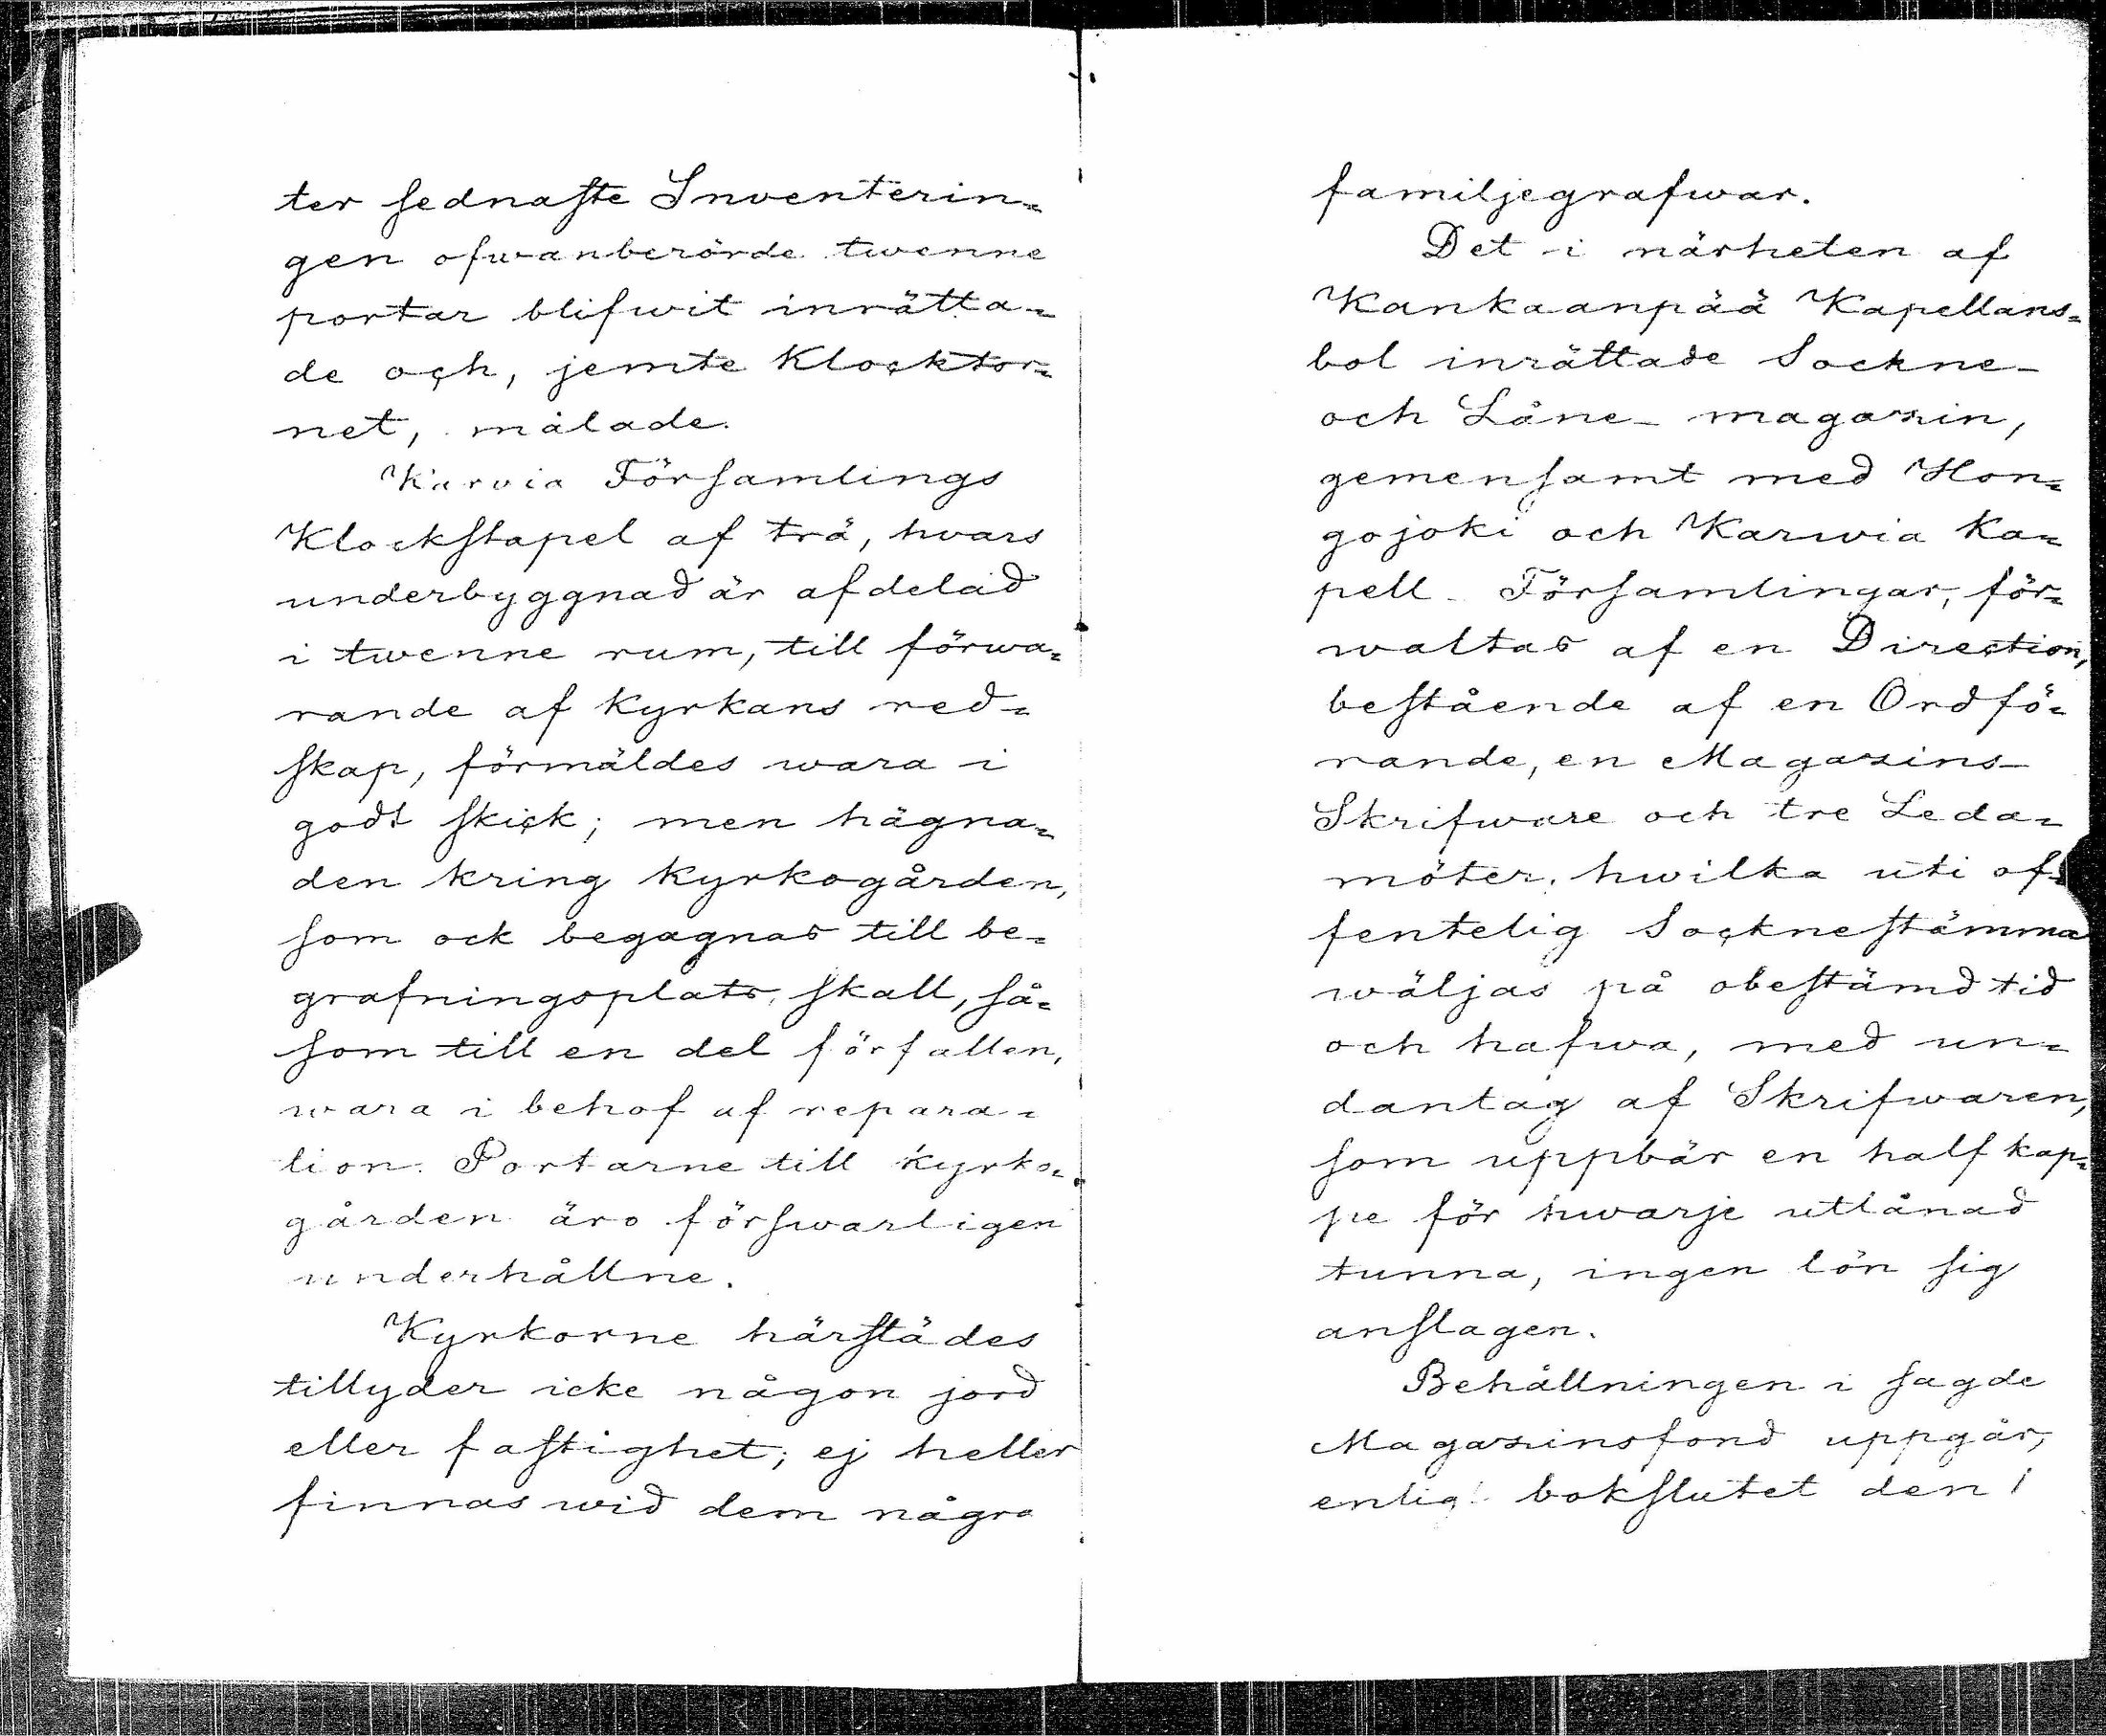 ter sednaste Inventerin=
gen ofwanberörde twenne
portar blifwit inrätta=
de och, jemte Klocktor=
net, målade.
Karvia Församlings
Klockstapel af trä, hvars
underbyggnad är afdelad
i twenne rum, till förwa=
rande af Kyrkans red=
skap, förmäldes wara i
godt skick; men hägna=
den kring Kyrkogården,
som ock begagnas till be=
grafningsplats, skall, så=
som till en del förfallen,
wara i behof af repara=
tion. Portarne till Kyrko=
gården äro förswarligen
underhållne.
Kyrkorne härstädes
tillyder icke någon jord
eller fastighet; ej heller
finnas wid dem några
familjegrafwar.
Det i närheten af
Kankaanpää Kapellans=
bol inrättade Sockne-
och Låne- magasin,
gemensamt med Hon=
gojoki och Karwia Ka=
pell- Församlingar, för=
waltas af en Direction,
bestående af en Ordfö=
rande, en Magasins-
Skrifware och tre Leda=
möter, hwilka uti of=
fentelig Socknestämma
wäljas på obestämd tid
och hafwa, med un=
dantag af Skrifwaren,
som uppbär en half kap=
pe för hwarje utlånad
tunna, ingen lön sig
anslagen.
Behållningen i sagde
Magasinsfond uppgår,
enligt bokslutet den 1